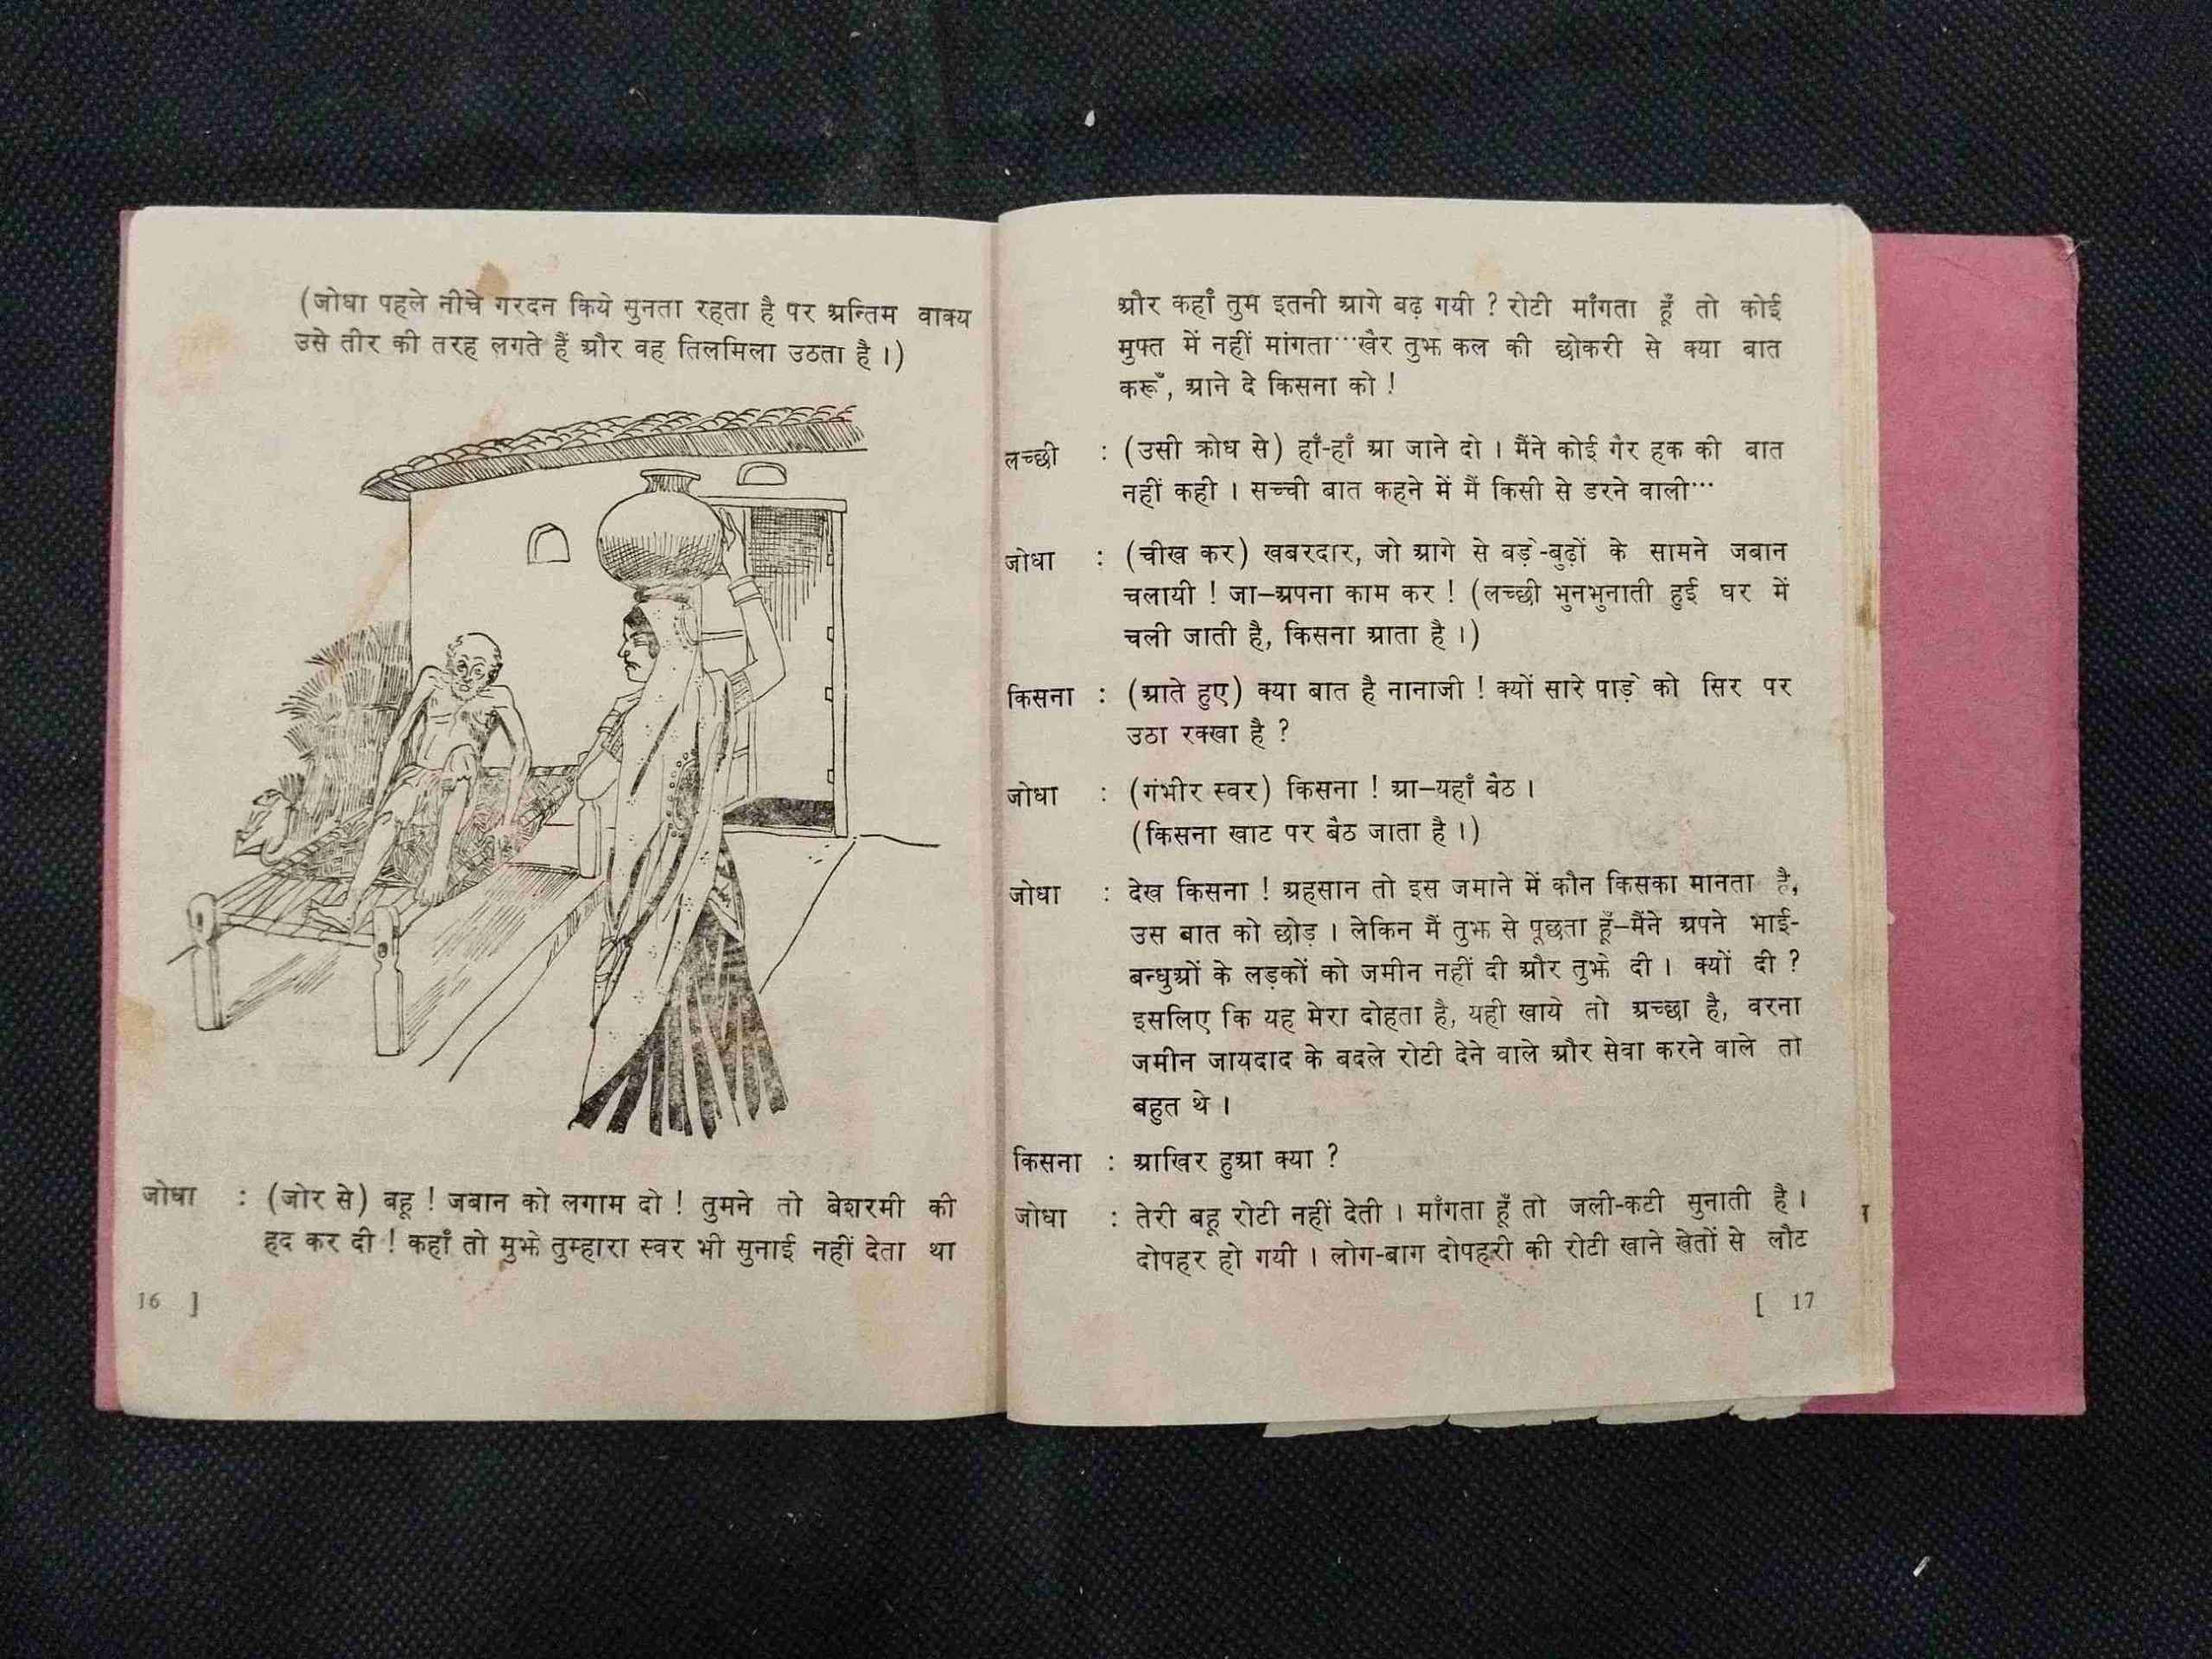 (जोधा पहले नीचे गरदन किये सुनता रहता है पर अन्तिम वाक्य
उसे तीर की तरह लगते हैं और वह तिलमिला उठता है ।)
जोधा : (जोर से) बहू ! जबान को लगाम दो ! तुमने तो बेशरमी की
हद कर दी ! कहाँ तो मुझे तुम्हारा स्वर भी सुनाई नहीं देता था
16 ]
और कहाँ तुम इतनी आगे बढ़ गयी ? रोटी माँगता हूँ तो कोई
मुफ्त में नहीं मांगता···खैर तुझ कल की छोकरी से क्या बात
करूँ, आने दे किसना को !
लच्छी : (उसी क्रोध से) हाँ-हाँ आ जाने दो । मैंने कोई गैर हक की बात
नहीं कही । सच्ची बात कहने में मैं किसी से डरने वाली···
जोधा : (चीख कर) खबरदार, जो आगे से बड़े-बुढ़ों के सामने जबान
चलायी ! जा–अपना काम कर ! (लच्छी भुनभुनाती हुई घर में
चली जाती है, किसना आता है ।)
किसना : (आते हुए) क्या बात है नानाजी ! क्यों सारे पाड़े को सिर पर
उठा रक्खा है ?
जोधा : (गंभीर स्वर) किसना ! आ–यहाँ बैठ ।
(किसना खाट पर बैठ जाता है ।)
जोधा : देख किसना ! अहसान तो इस जमाने में कौन किसका मानता है,
उस बात को छोड़ । लेकिन मैं तुझ से पूछता हूँ–मैंने अपने भाई-
बन्धुओं के लड़कों को जमीन नहीं दी और तुझे दी । क्यों दी ?
इसलिए कि यह मेरा दोहता है, यही खाये तो अच्छा है, वरना
जमीन जायदाद के बदले रोटी देने वाले और सेवा करने वाले तो
बहुत थे ।
किसना : आखिर हुआ क्या ?
जोधा : तेरी बहू रोटी नहीं देती । माँगता हूँ तो जली-कटी सुनाती है ।
दोपहर हो गयी । लोग-बाग दोपहरी की रोटी खाने खेतों से लौट
[ 17